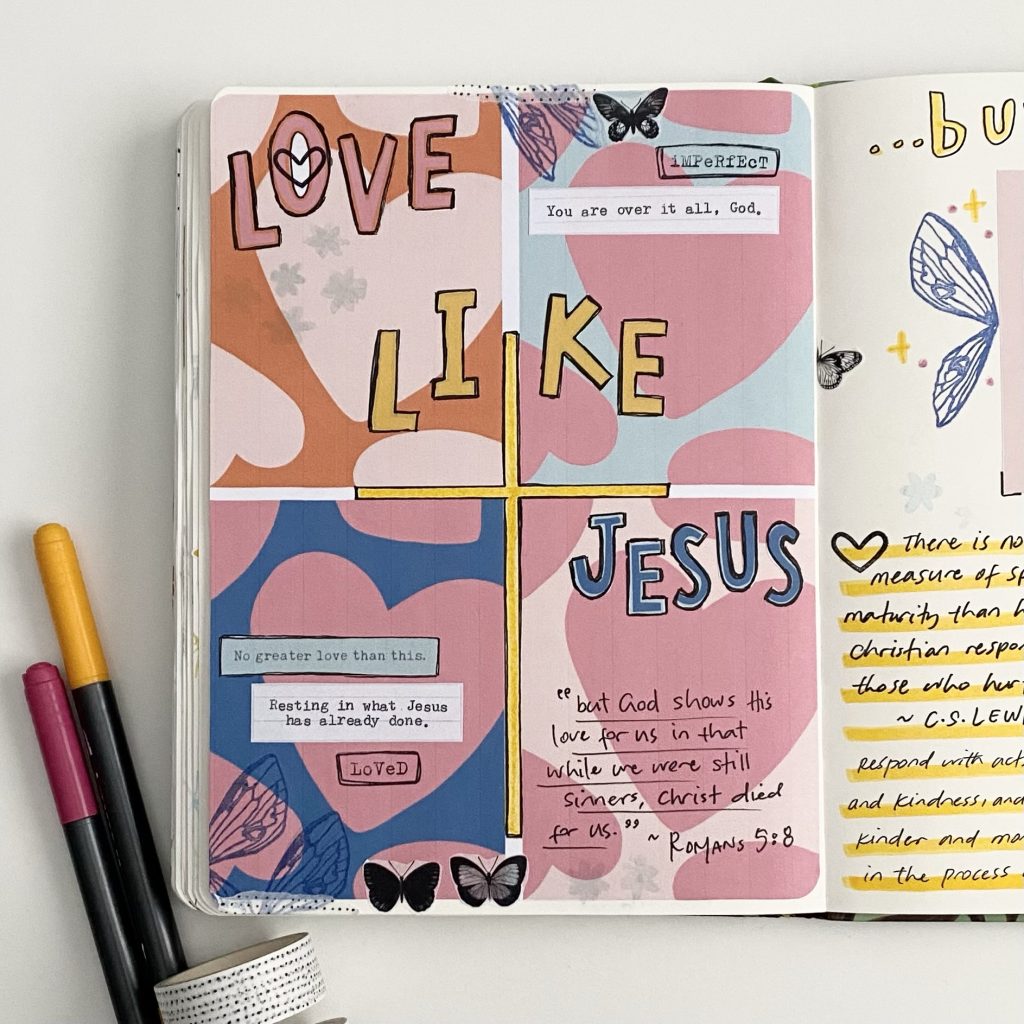 LOVE
LIKE
JESUS
iMPeRfEcT
You are over it all, God.
No greater love than this.
Resting in what Jesus
has already done.
LoVeD
"but God shows His
love for us in that
while we were still
sinners, Christ died
for us."
~ ROMANS 5:8
...bu
There is no
measure of
maturity than
Christian
those who
~ C.S.
respond with
and kindness, and
kinder and
in the process